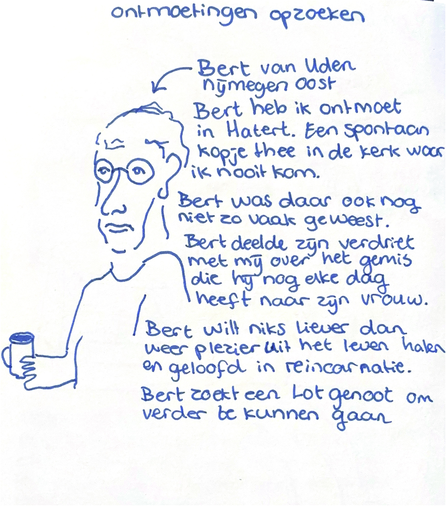 ontmoetingen opzoeken
Bert van Uden
nijmegen oost
Bert heb ik ontmoet
in Hatert. Een spontaan
kopje thee in de kerk waar
ik nooit kom.
Bert was daar ook nog
niet zo vaak geweest.
Bert deelde zijn verdriet
met mij over het gemis
die hij nog elke dag
heeft naar zijn vrouw.
Bert wilt niks liever dan
weer plezier uit het leven halen
en geloofd in reincarnatie.
Bert zoekt een Lotgenoot om
verder te kunnen gaan